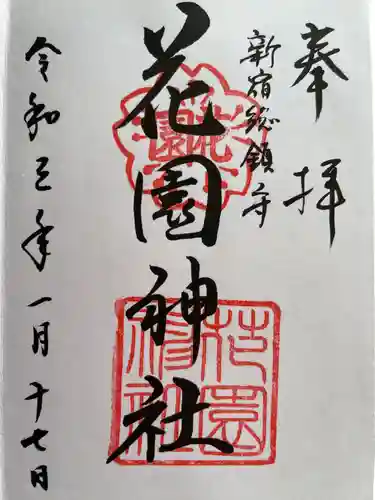 奉拝
新宿総鎮守
花園神社
花園
花園神社
令和三年一月十七日